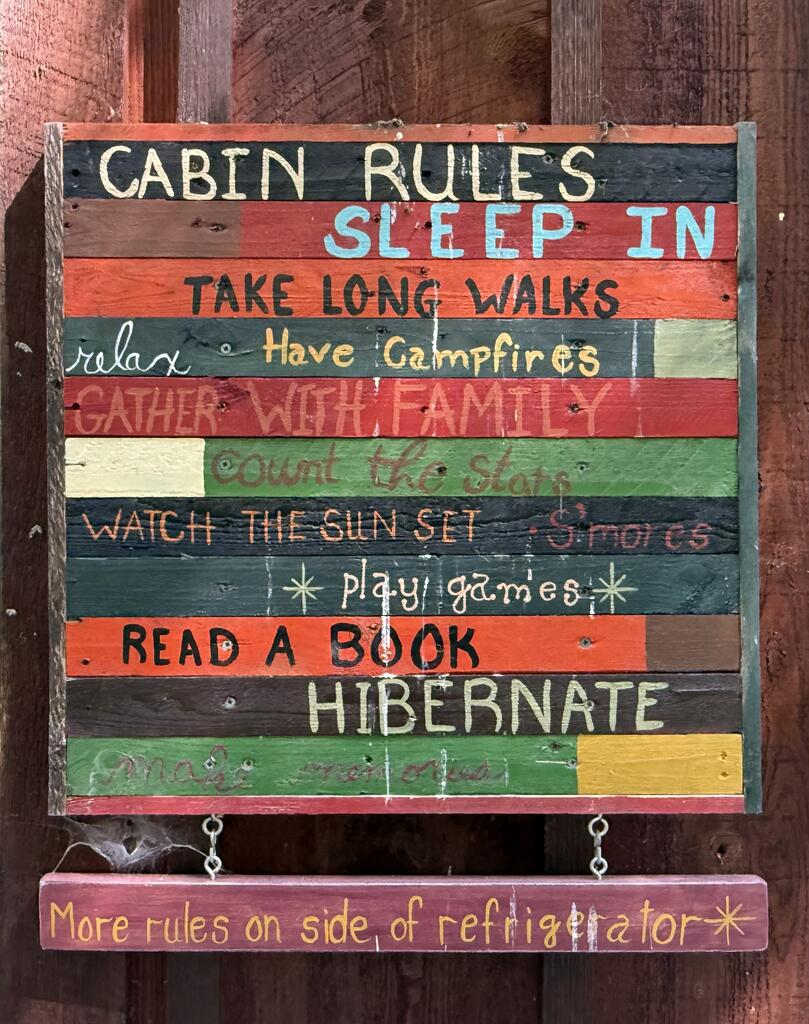 CABIN RULES
SLEEP IN
TAKE LONG WALKS
relax Have Campfires
GATHER WITH FAMILY
count the stars
WATCH THE SUN SET · S'mores
play games
READ A BOOK
HIBERNATE
make memories
More rules on side of refrigerator